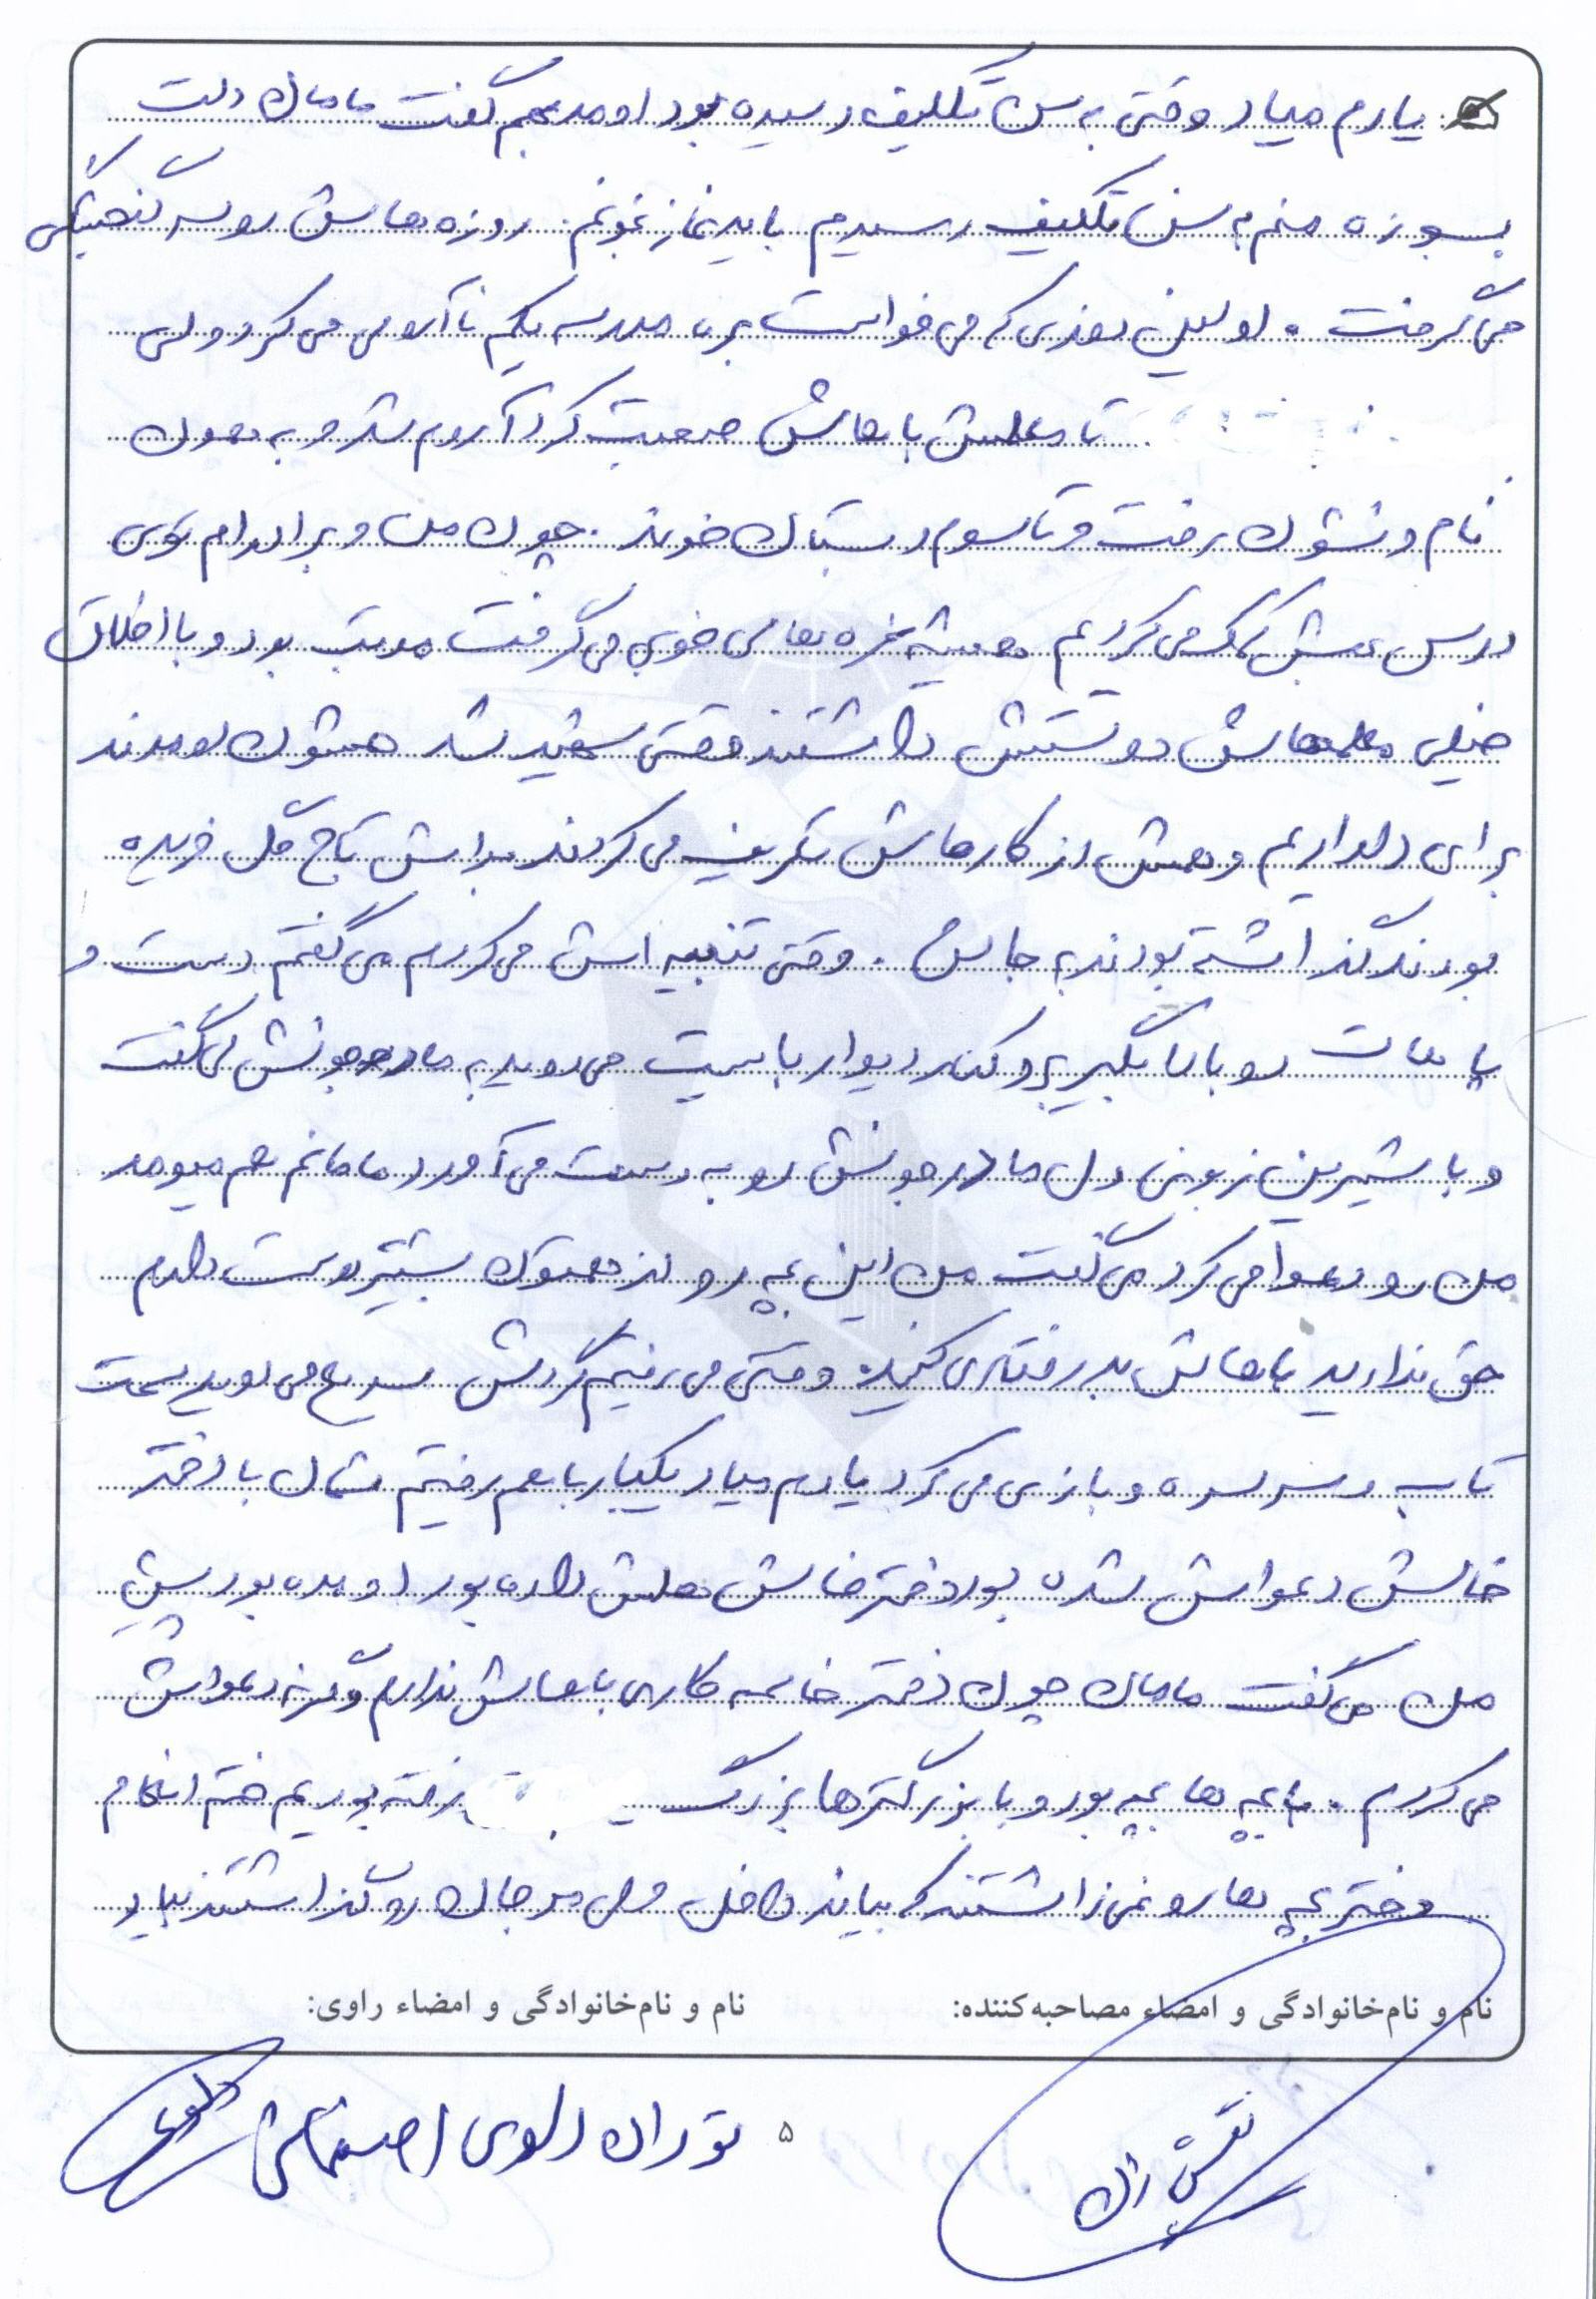 یادم میاد وقتی به سن تکلیف رسیده بود اومد بهم گفت مامان دلت
بسوزه منم به سن تکلیف رسیدم باید نماز بخونم. روزه هاش رو سر گنجشکی
می گرفت. اولین روزی که می خواست بره مدرسه یکم ناآرومی می کرد ولی
تا معلمش باهاش صحبت کرد آروم شد و به همون
نام و نشون رفت و تا سوم دبستان خوند. چون من و برادرام توی
درس بهش کمک می کردیم همیشه نمره های خوبی می گرفت مرتب بود و با اخلاق
خیلی معلمهاش دوستش داشتند وقتی شهید شد همشون اومدند
برای دلداریم و همش از کارهاش تعریف می کردند براش تاج گل خریده
بودند گذاشته بودند به جاش. وقتی تنبیه اش می کردم می گفتم دست و
پاهات رو بالا بگیر برو کنار دیوار بایست می دوید به مادرجونش می گفت
و با شیرین زبونی دل مادرجونش رو به دست می آورد مامانم هم میومد
من رو دعوا می کرد می گفت من این بچه رو از همتون بیشتر دوست دارم
حق ندارید باهاش بدرفتاری کنید. وقتی می رفتیم گردش سریع می دوید سمت
تاب و سرسره و بازی می کرد یادم میاد یکبار با هم رفتیم شمال با دختر
خالش دعواش شده بود دختر خالش هلش داده بود اومده بود پیش
من می گفت مامان چون دختر خالمه کاری باهاش ندارم وگرنه دعواش
می کردم. با بچه ها بچه بود و با بزرگترها بزرگ رفته بودیم ختم انعام
دختر بچه ها رو نمی ذاشتند که بیاند داخل ولی مرجان رو گذاشتند بیاد
نام و نام‌خانوادگی و امضاء مصاحبه‌کننده: نام و نام‌خانوادگی و امضاء راوی:
۵ توران دلوی اصفهانی